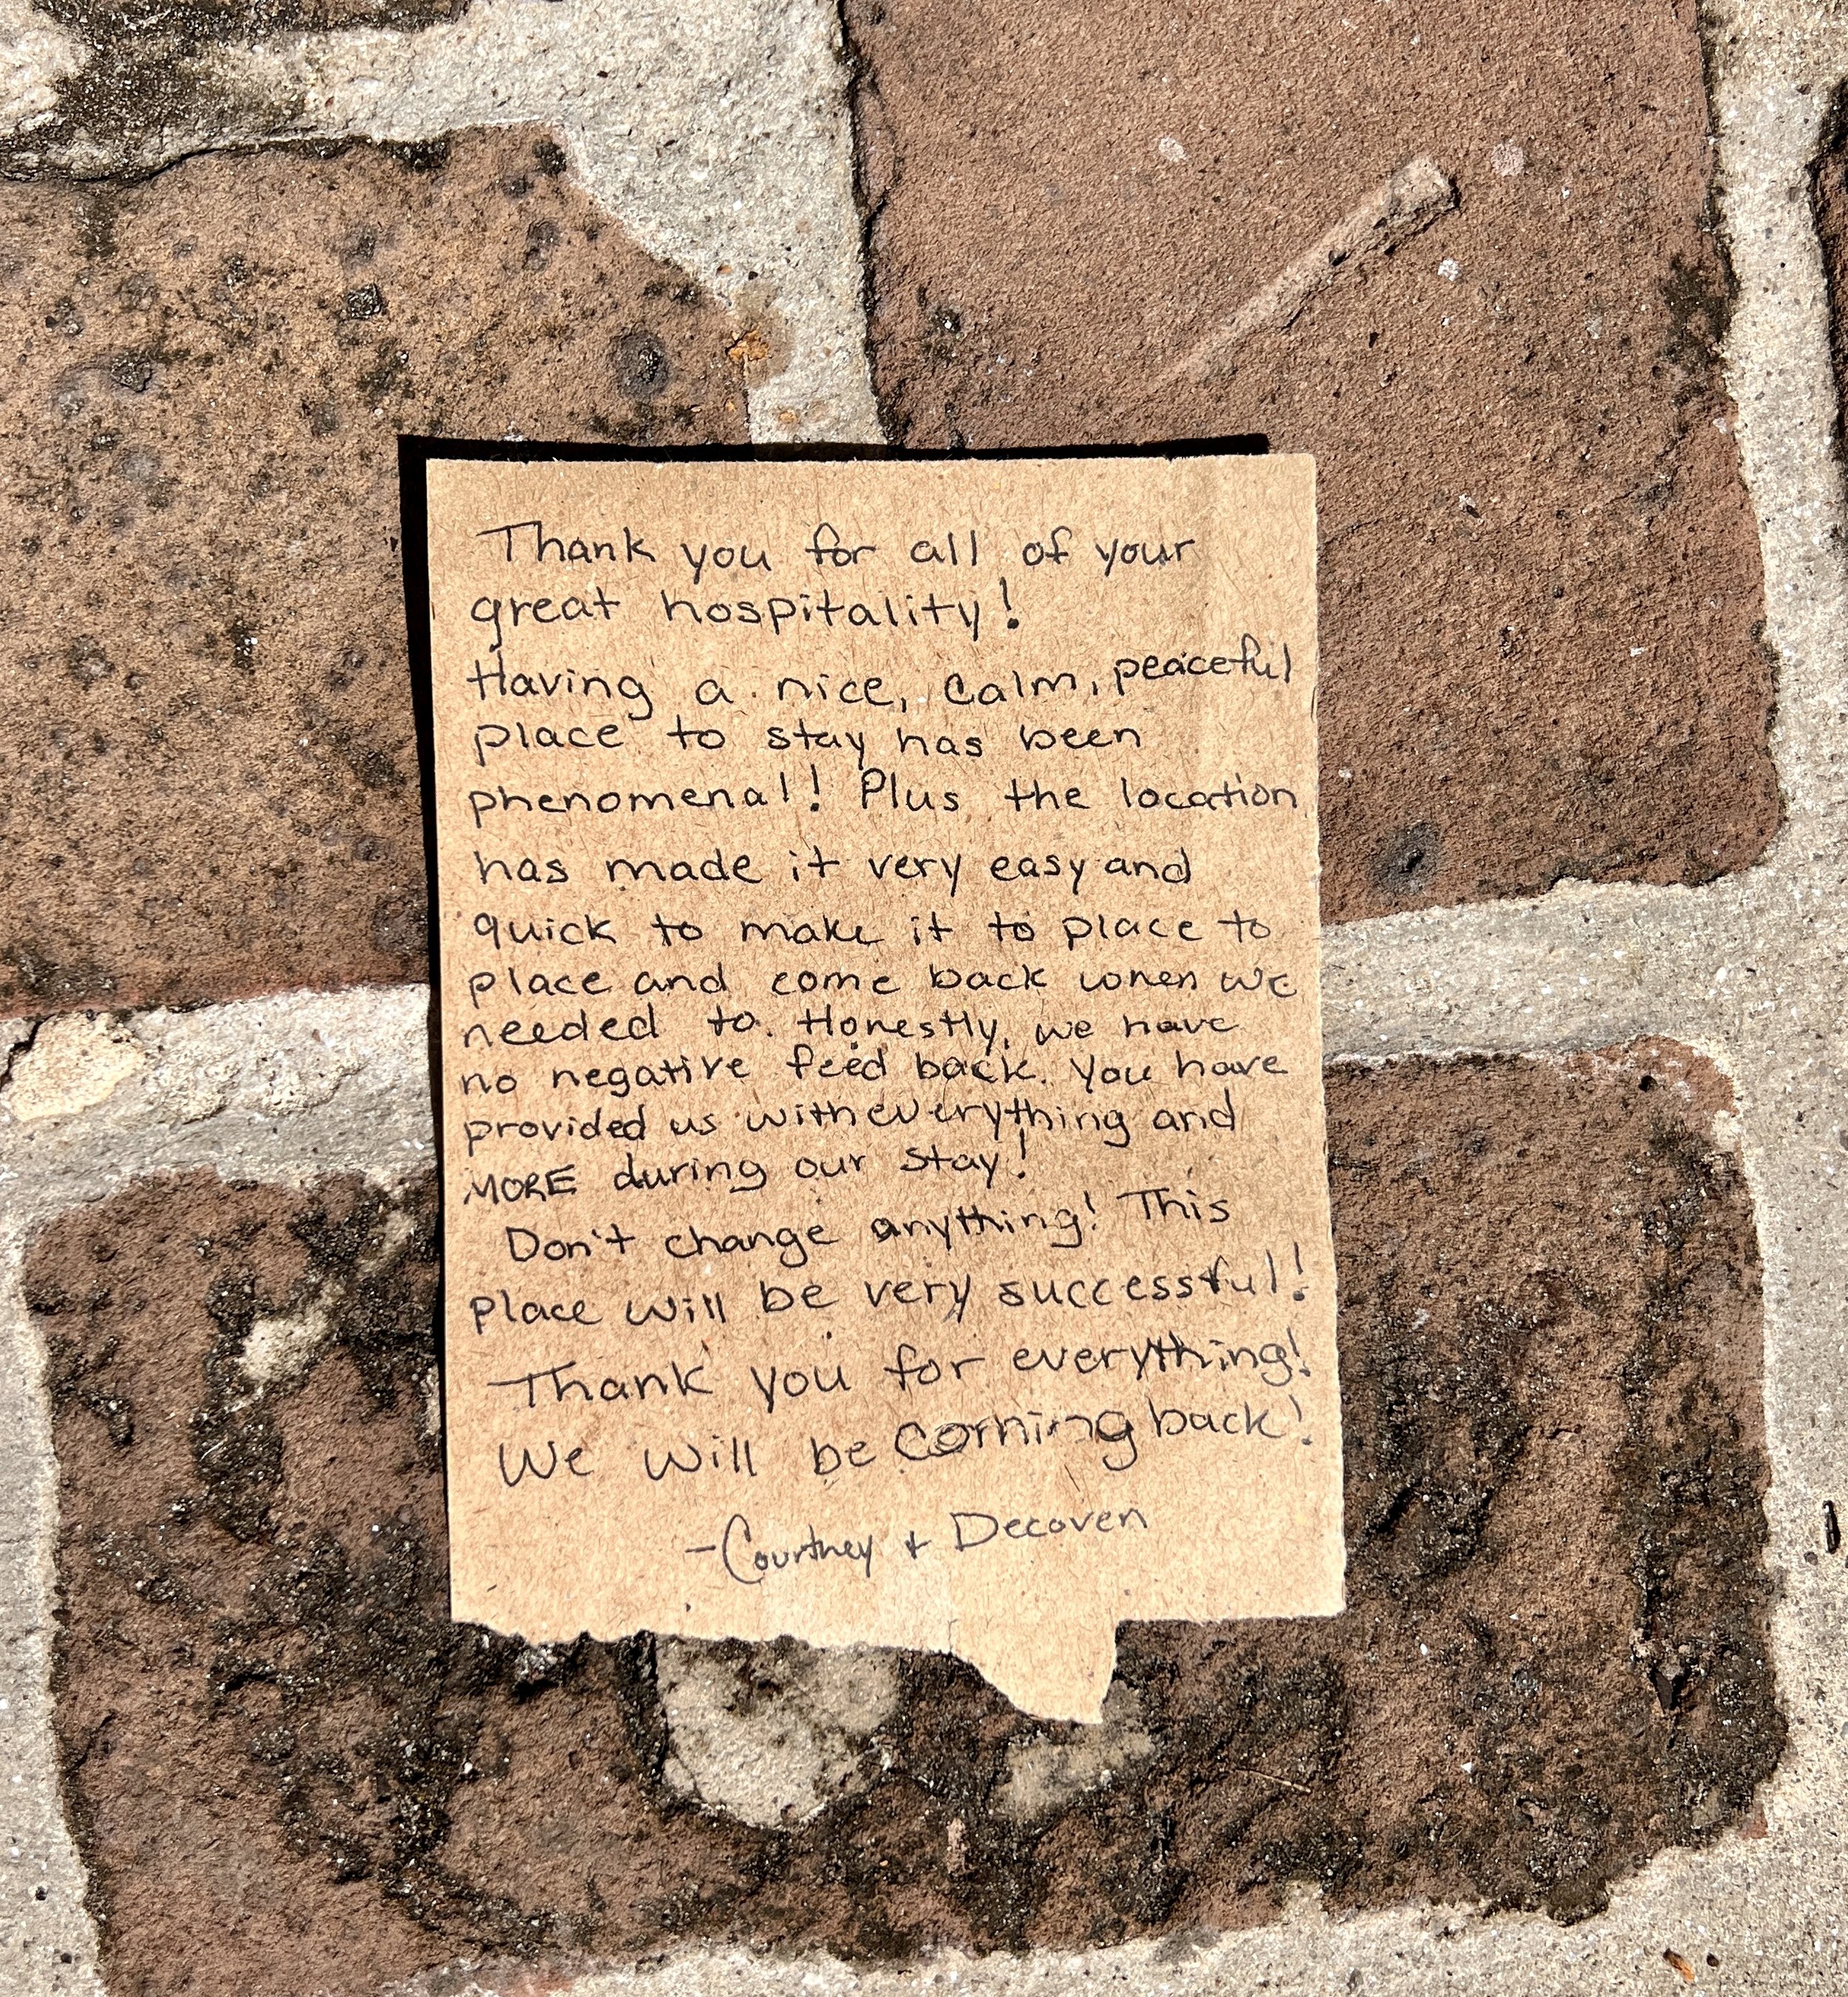 Thank you for all of your
great hospitality!
Having a nice, calm, peaceful
place to stay has been
phenomenal! Plus the location
has made it very easy and
quick to make it to place to
place and come back when we
needed to. Honestly, we have
no negative feed back. You have
provided us with everything and
MORE during our stay!
Don't change anything! This
place will be very successful!
Thank you for everything!
We will be coming back!
-Courtney + Decoven